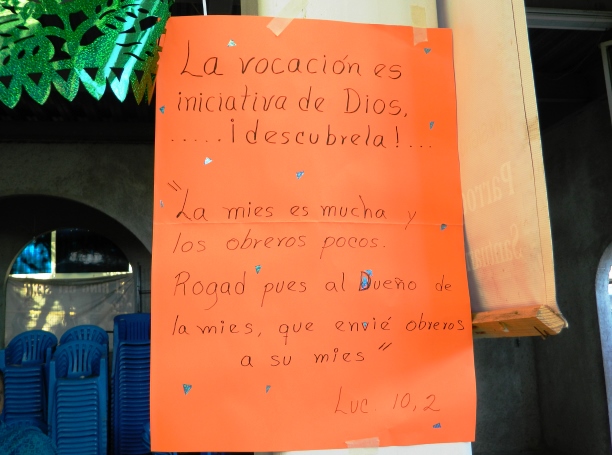 La vocación es
iniciativa de Dios,
.....¡descubrela!...
"La mies es mucha y
los obreros pocos.
Rogad pues al Dueño de
la mies, que envié obreros
a su mies"
Luc 10,2